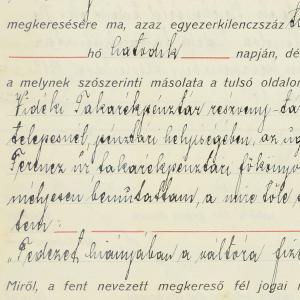 megkeresésére ma, azaz egyezerkilenczszáz
hó hatodik napján, dé
a melynek szószerinti másolata a tulsó oldalon
Vidéki Takarékpénztár részvény-tár
telepesnél, pénztári helyiségében, az üg
Ferencz úr takarékpénztári főkönyv
mélyesen bemutattam, a mire tőle
tem:
„Fedezet hiányában a váltóra fize
Miről, a fent nevezett megkereső fél jogai